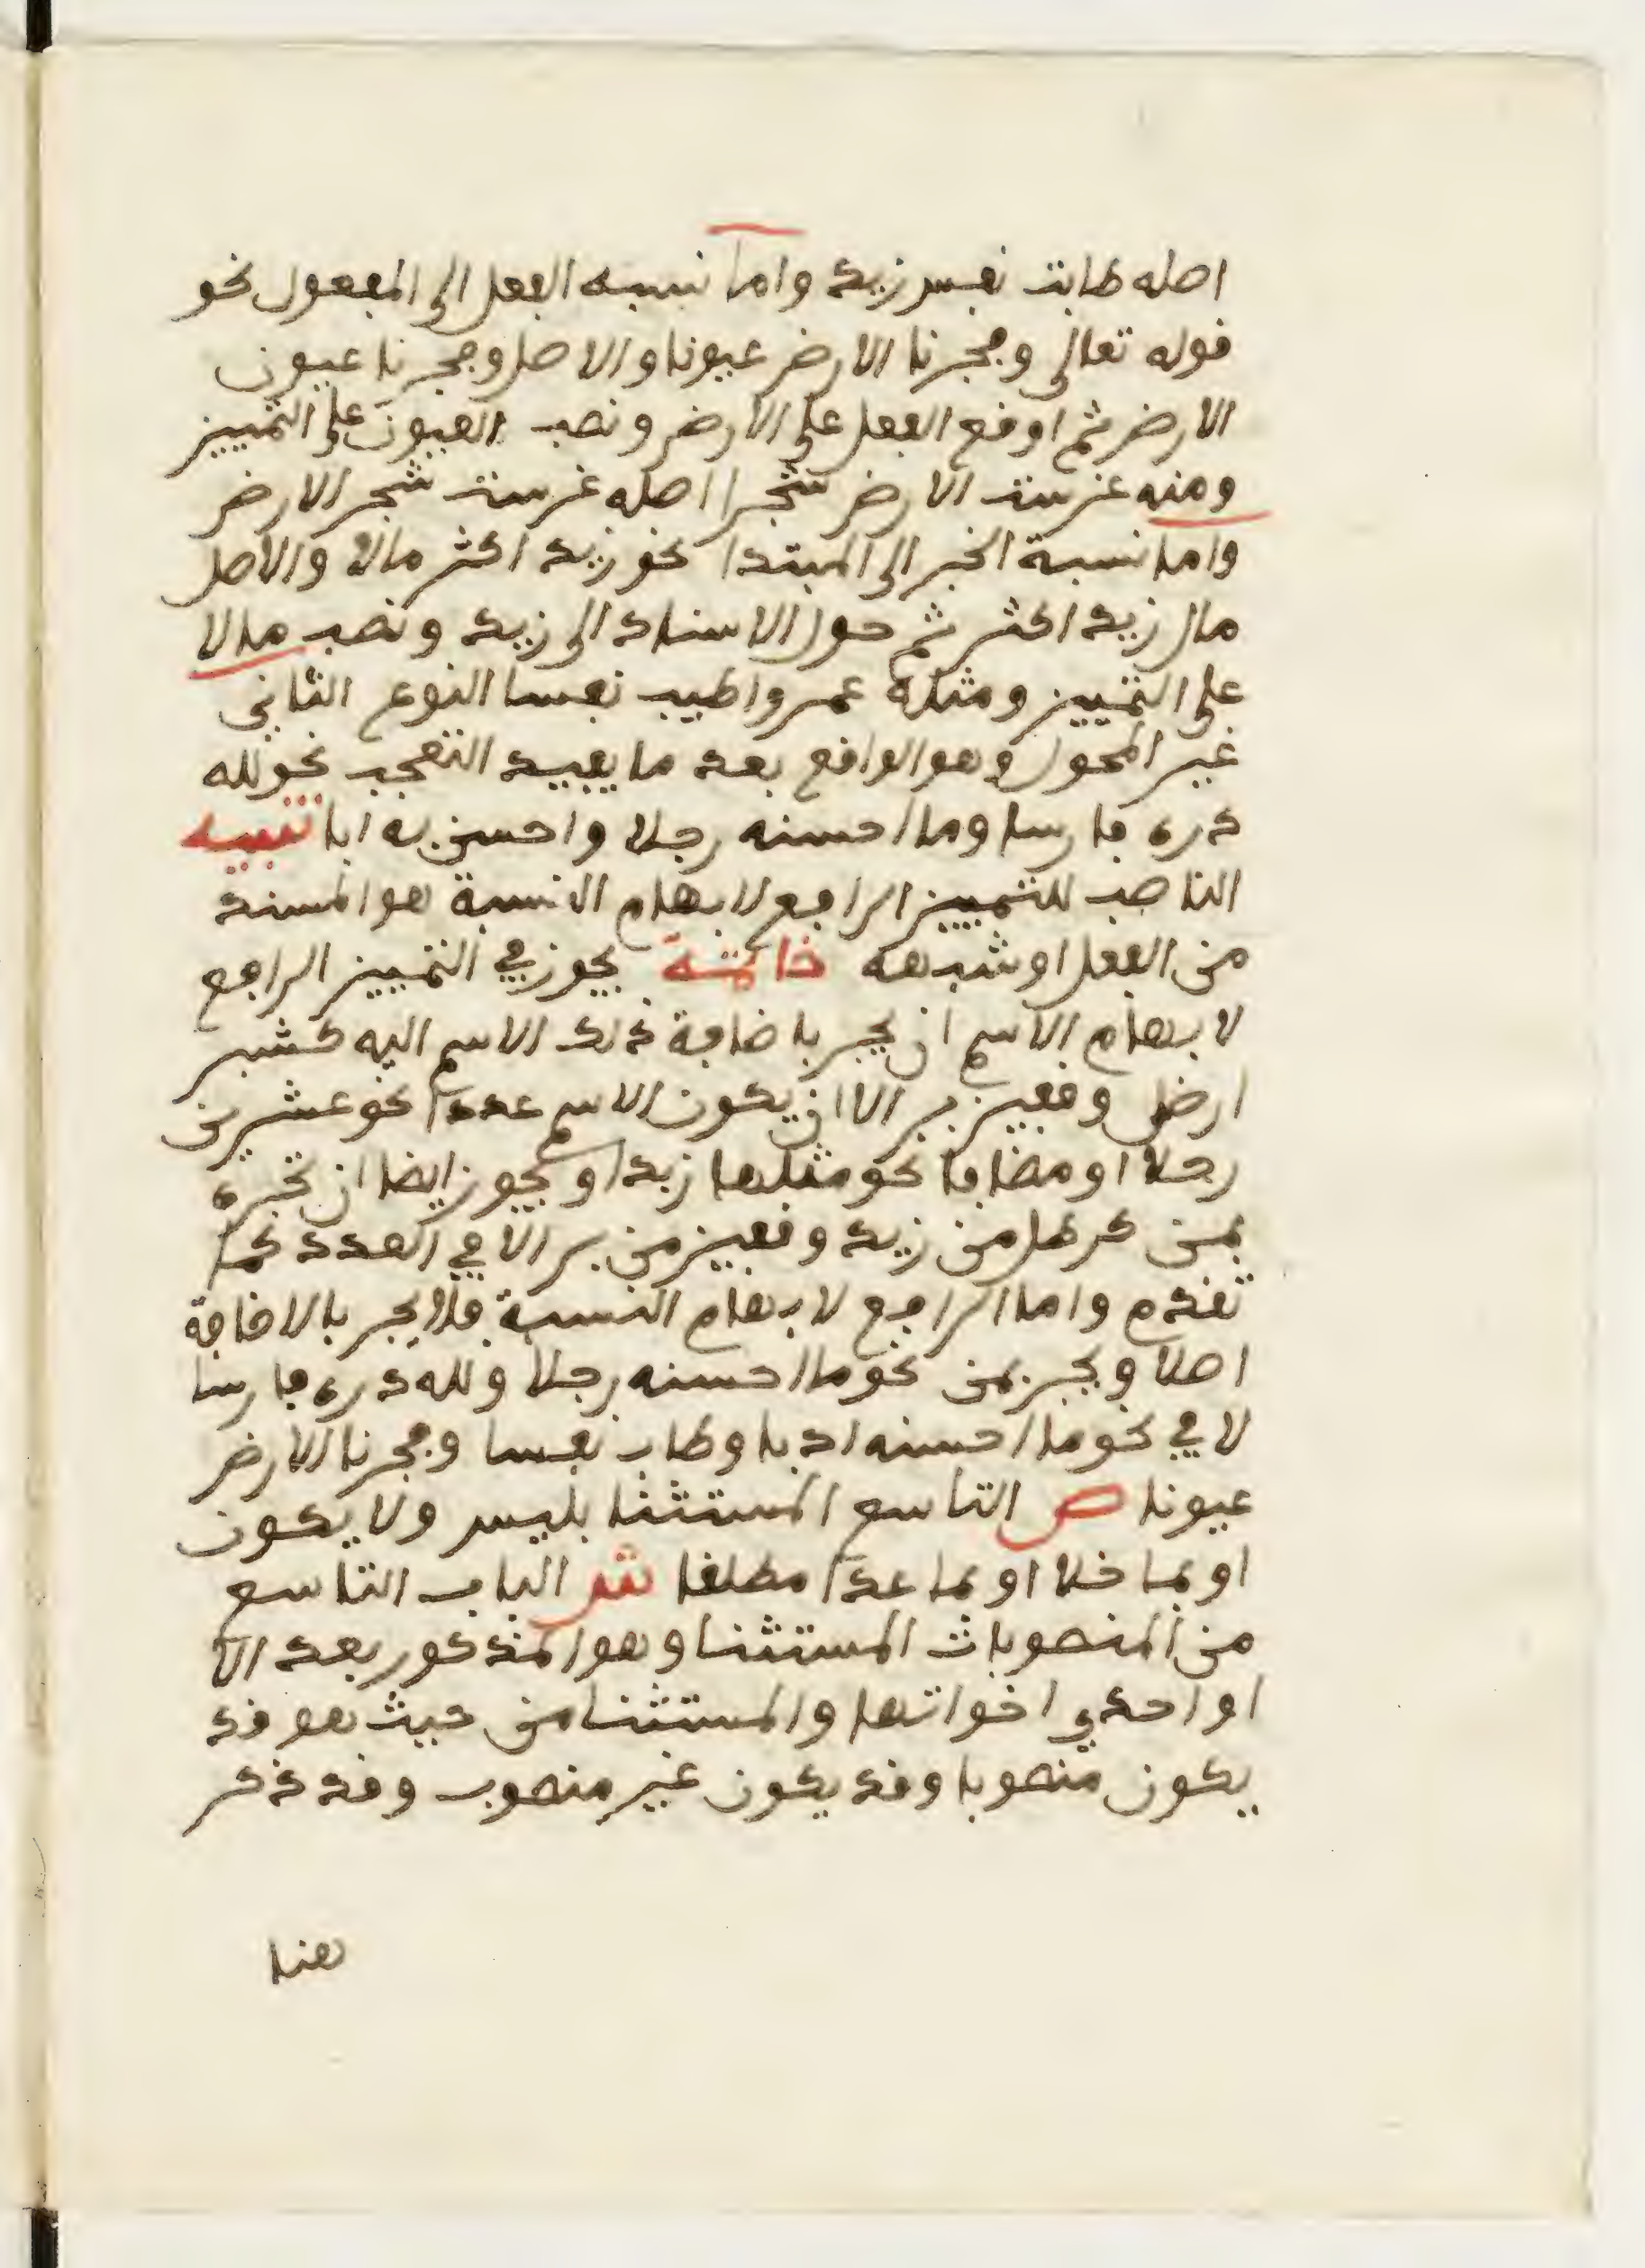 اصله طابت نفس زيد واما نسبه الفعل الى المفعول نحو
قوله تعالى وفجرنا الارض عيونا والاصل وفجرنا عيون
الارض ثم اوقع الفعل على الارض ونصب العيون على التمييز
ومنه غرست الارض شجرا اصله غرست شجر الارض
واما نسبة الخبر الى المبتدا نحو زيد اكثر مالا والاصل
مال زيد اكثر ثم حول الاسناد الى زيد ونصب مالا
على التمييز ومثله عمرو اطيب نفسا النوع الثاني
غير المحول وهو الواقع بعد ما يفيد التعجب نحو لله
دره فارسا وما احسنه رجلا واحسن به ابا تنبيه
الناصب للتمييز الرافع لابهام النسبة هو المسند
من الفعل او شبهه خاتمة يجوز في التمييز الرافع
لابهام الاسم ان يجر باضافة ذلك الاسم اليه كشبر
ارض وقفيز بر الا ان يكون الاسم عددا نحو عشرين
رجلا او مضافا نحو مثلها زبدا ويجوز ايضا ان تجره
بمن كرطل من زيد وقفيز من بر الا في العدد كما
تقدم واما الرافع لابهام النسبة فلا يجر بالاضافة
اصلا ويجر بمن نحو ما احسنه رجلا ولله دره فارسا
لا في نحو ما احسنه ادبا وطاب نفسا وفجرنا الارض
عيونا ص التاسع المستثنا بليس ولا يكون
او بما خلا او بما عدا مطلقا ش الباب التاسع
من المنصوبات المستثنا وهو المذكور بعد الا
او احدي اخواتها والمستثنا من حيث هو قد
يكون منصوبا وقد يكون غير منصوب وقد ذكر
هنا